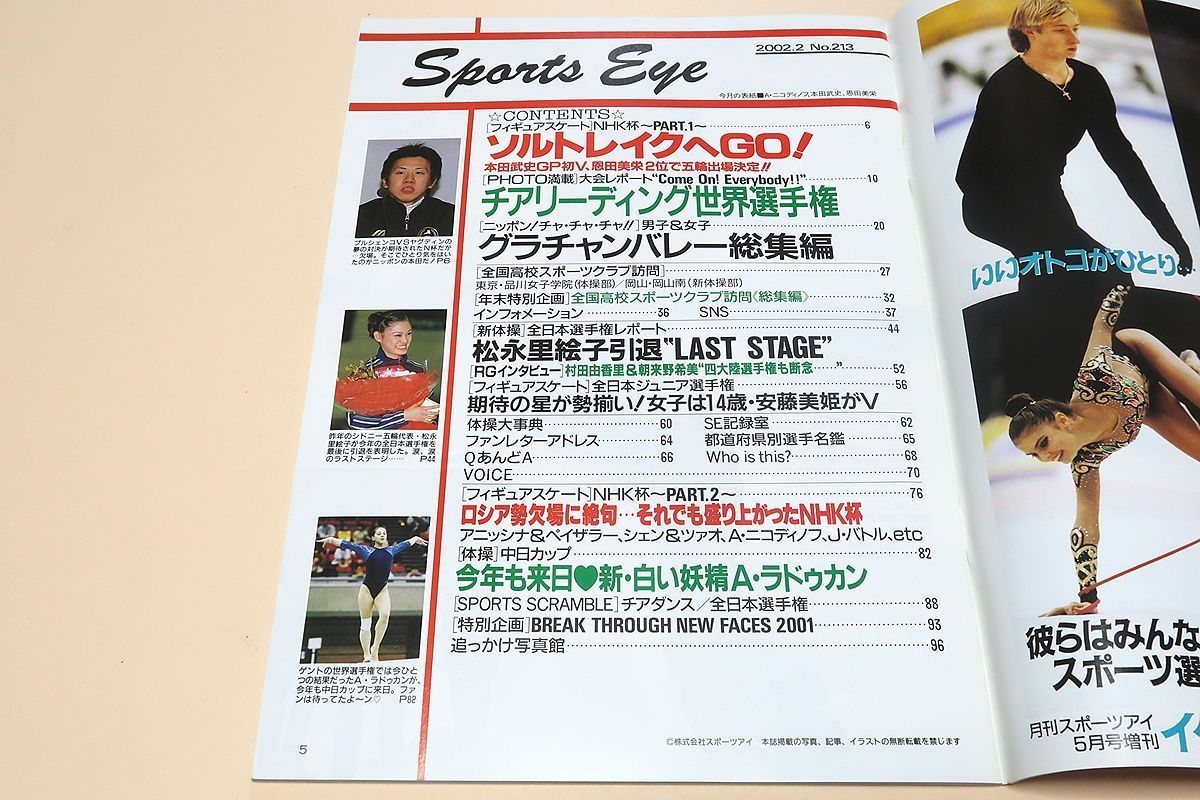 Sports Eye
2002.2 No.213
今月の表紙■A・ニコディノフ、本田武史、恩田美栄
☆CONTENTS☆
[フィギュアスケート]NHK杯〜PART.1〜 6
ソルトレイクへGO!
本田武史GP初V、恩田美栄2位で五輪出場決定!!
[PHOTO満載]大会レポート"Come On! Everybody!!" 10
チアリーディング世界選手権
[ニッポン!チャ・チャ・チャ!!]男子&女子 20
グラチャンバレー総集編
[全国高校スポーツクラブ訪問] 27
東京・品川女子学院(体操部)/岡山・岡山南(新体操部)
[年末特別企画]全国高校スポーツクラブ訪問《総集編》 32
インフォメーション 36 SNS 37
[新体操]全日本選手権レポート 44
松永里絵子引退"LAST STAGE"
[RGインタビュー]村田由香里&朝来野希美"四大陸選手権も断念……" 52
[フィギュアスケート]全日本ジュニア選手権 56
期待の星が勢揃い!女子は14歳・安藤美姫がV
体操大事典 60 SE記録室 62
ファンレターアドレス 64 都道府県別選手名鑑 65
QあんどA 66 Who is this? 68
VOICE 70
[フィギュアスケート]NHK杯〜PART.2〜 76
ロシア勢欠場に絶句…それでも盛り上がったNHK杯
アニッシナ&ペイザラー、シェン&ツァオ、A・ニコディノフ、J・バトル、etc
[体操]中日カップ 82
今年も来日♥新・白い妖精A・ラドゥカン
[SPORTS SCRAMBLE]チアダンス/全日本選手権 88
[特別企画]BREAK THROUGH NEW FACES 2001 93
追っかけ写真館 96
プルシェンコVSヤグディンの
夢の対決が期待されたN杯だが
…欠場。そこでひとり気をはい
たのがニッポンの本田だ! P6
昨年のシドニー五輪代表・松永
里絵子が今年の全日本選手権を
最後に引退を表明した。涙、涙
のラストステージ…… P44
ゲントの世界選手権では今ひと
つの結果だったA・ラドゥカンが、
今年も中日カップに来日。ファ
ンは待ってたよ〜ン♡ P82
5
©株式会社スポーツアイ 本誌掲載の写真、記事、イラストの無断転載を禁じます
いいオトコがひとり…
彼らはみんな
スポーツ選
月刊スポーツアイ
5月号増刊